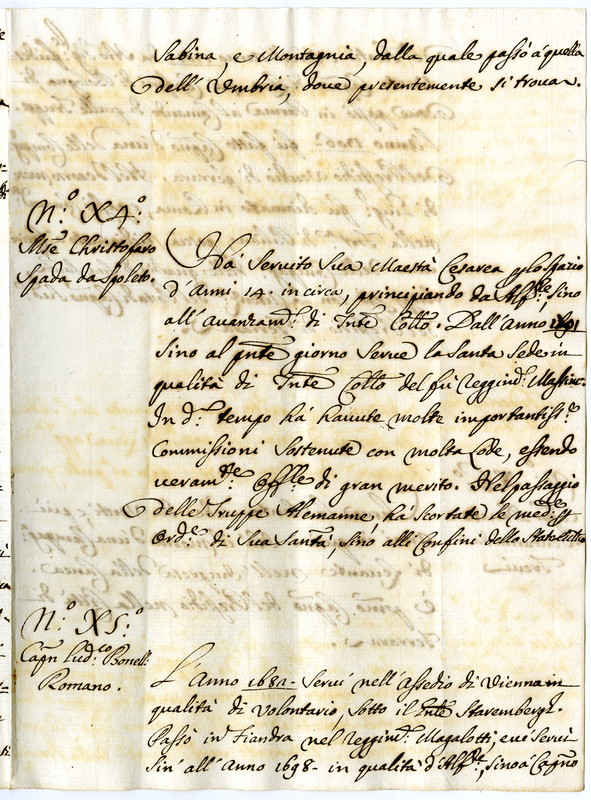 Sabina, e Montagnia, dalla quale passò à quella
dell' Umbria, dove presentemente si trova.
N.º X4.º
Mse Christofaro
Spada da Spoleto.
Hà servito Sua Maestà Cesarea p lo spazio
d'Anni 14. in circa, principiando da Alfle, sino
all' avanzamto. di Tnte Collo. Dall' Anno 1691
sino al pnte giorno serve la Santa Sede in
qualità di Tnte Collo del fù Reggimto. Massim.
In do. tempo hà havute molte importantisse
Commissioni sostenute con molta lode, essendo
veramte. Offle di gran merito. Nel passaggio
delle Truppe Alemanne, hà scortate le mede. p
Orde. di Sua Santà, sino alli Confini dello Stato
N.º X5.º
Capn Ludco Bonelli
Romano.
L'Anno 1682 - servì nell' Assedio di Vienna in
qualità di Volontario, sotto il Tnte Starembergh.
Passò in Fiandra nel Reggimto. Magalotti, e vi servì
sin' all' Anno 1698 - in qualità d'Alfre, sino à Capno